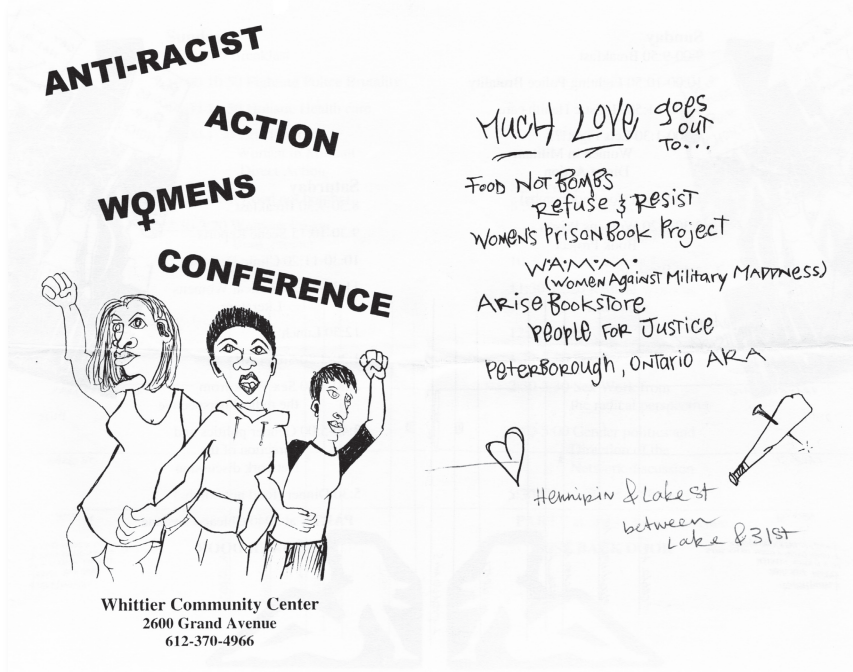 ANTI-RACIST
ACTION
WOMENS
CONFERENCE
Whittier Community Center
2600 Grand Avenue
612-370-4966
MUCH LOVE goes
out
to...
FOOD NOT BOMBS
Refuse & Resist
WOMEN'S PRISON BOOK Project
W.A.M.M.
(WOMEN Against Military MADDNESS)
ARISE BOOKSTORE
PEOPLE FOR JUSTICE
PETERBOROUGH, ONTARIO ARA
Hennipin & Lake St
between
Lake & 31st